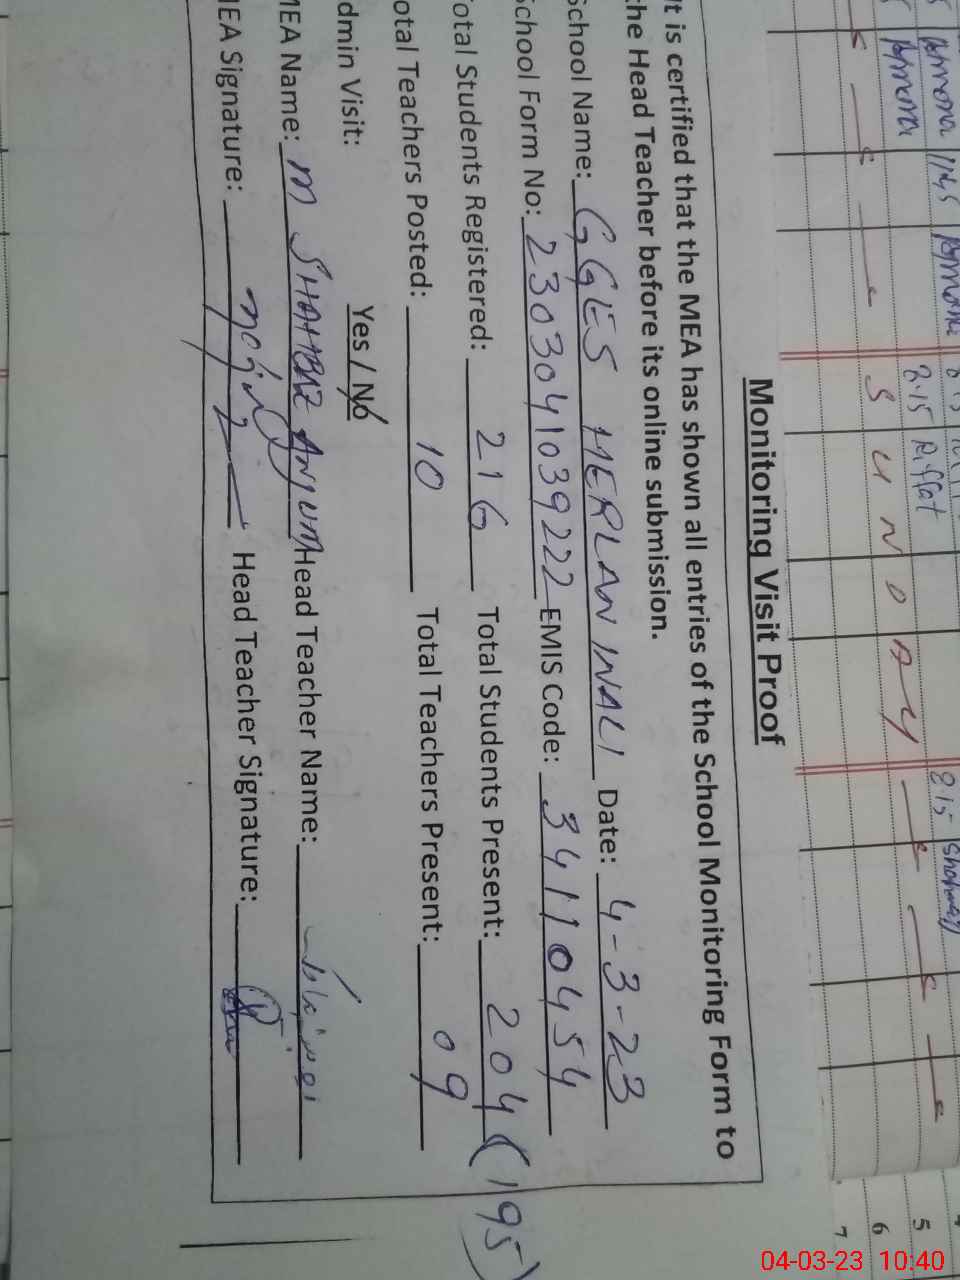 Monitoring Visit Proof
It is certified that the MEA has shown all entries of the School Monitoring Form to
the Head Teacher before its online submission.
School Name: GGES HERLAN WALI Date: 4-3-23
School Form No: 2303041039222 EMIS Code: 34110454
Total Students Registered: 216 Total Students Present: 204 (195)
otal Teachers Posted: 10 Total Teachers Present: 09
dmin Visit: Yes / No
MEA Name: M SHAHBAZ ANJUM Head Teacher Name:
MEA Signature: Head Teacher Signature:
8.15 Riffat
8.15
S U N D A Y
5
6
7
04-03-23 10:40